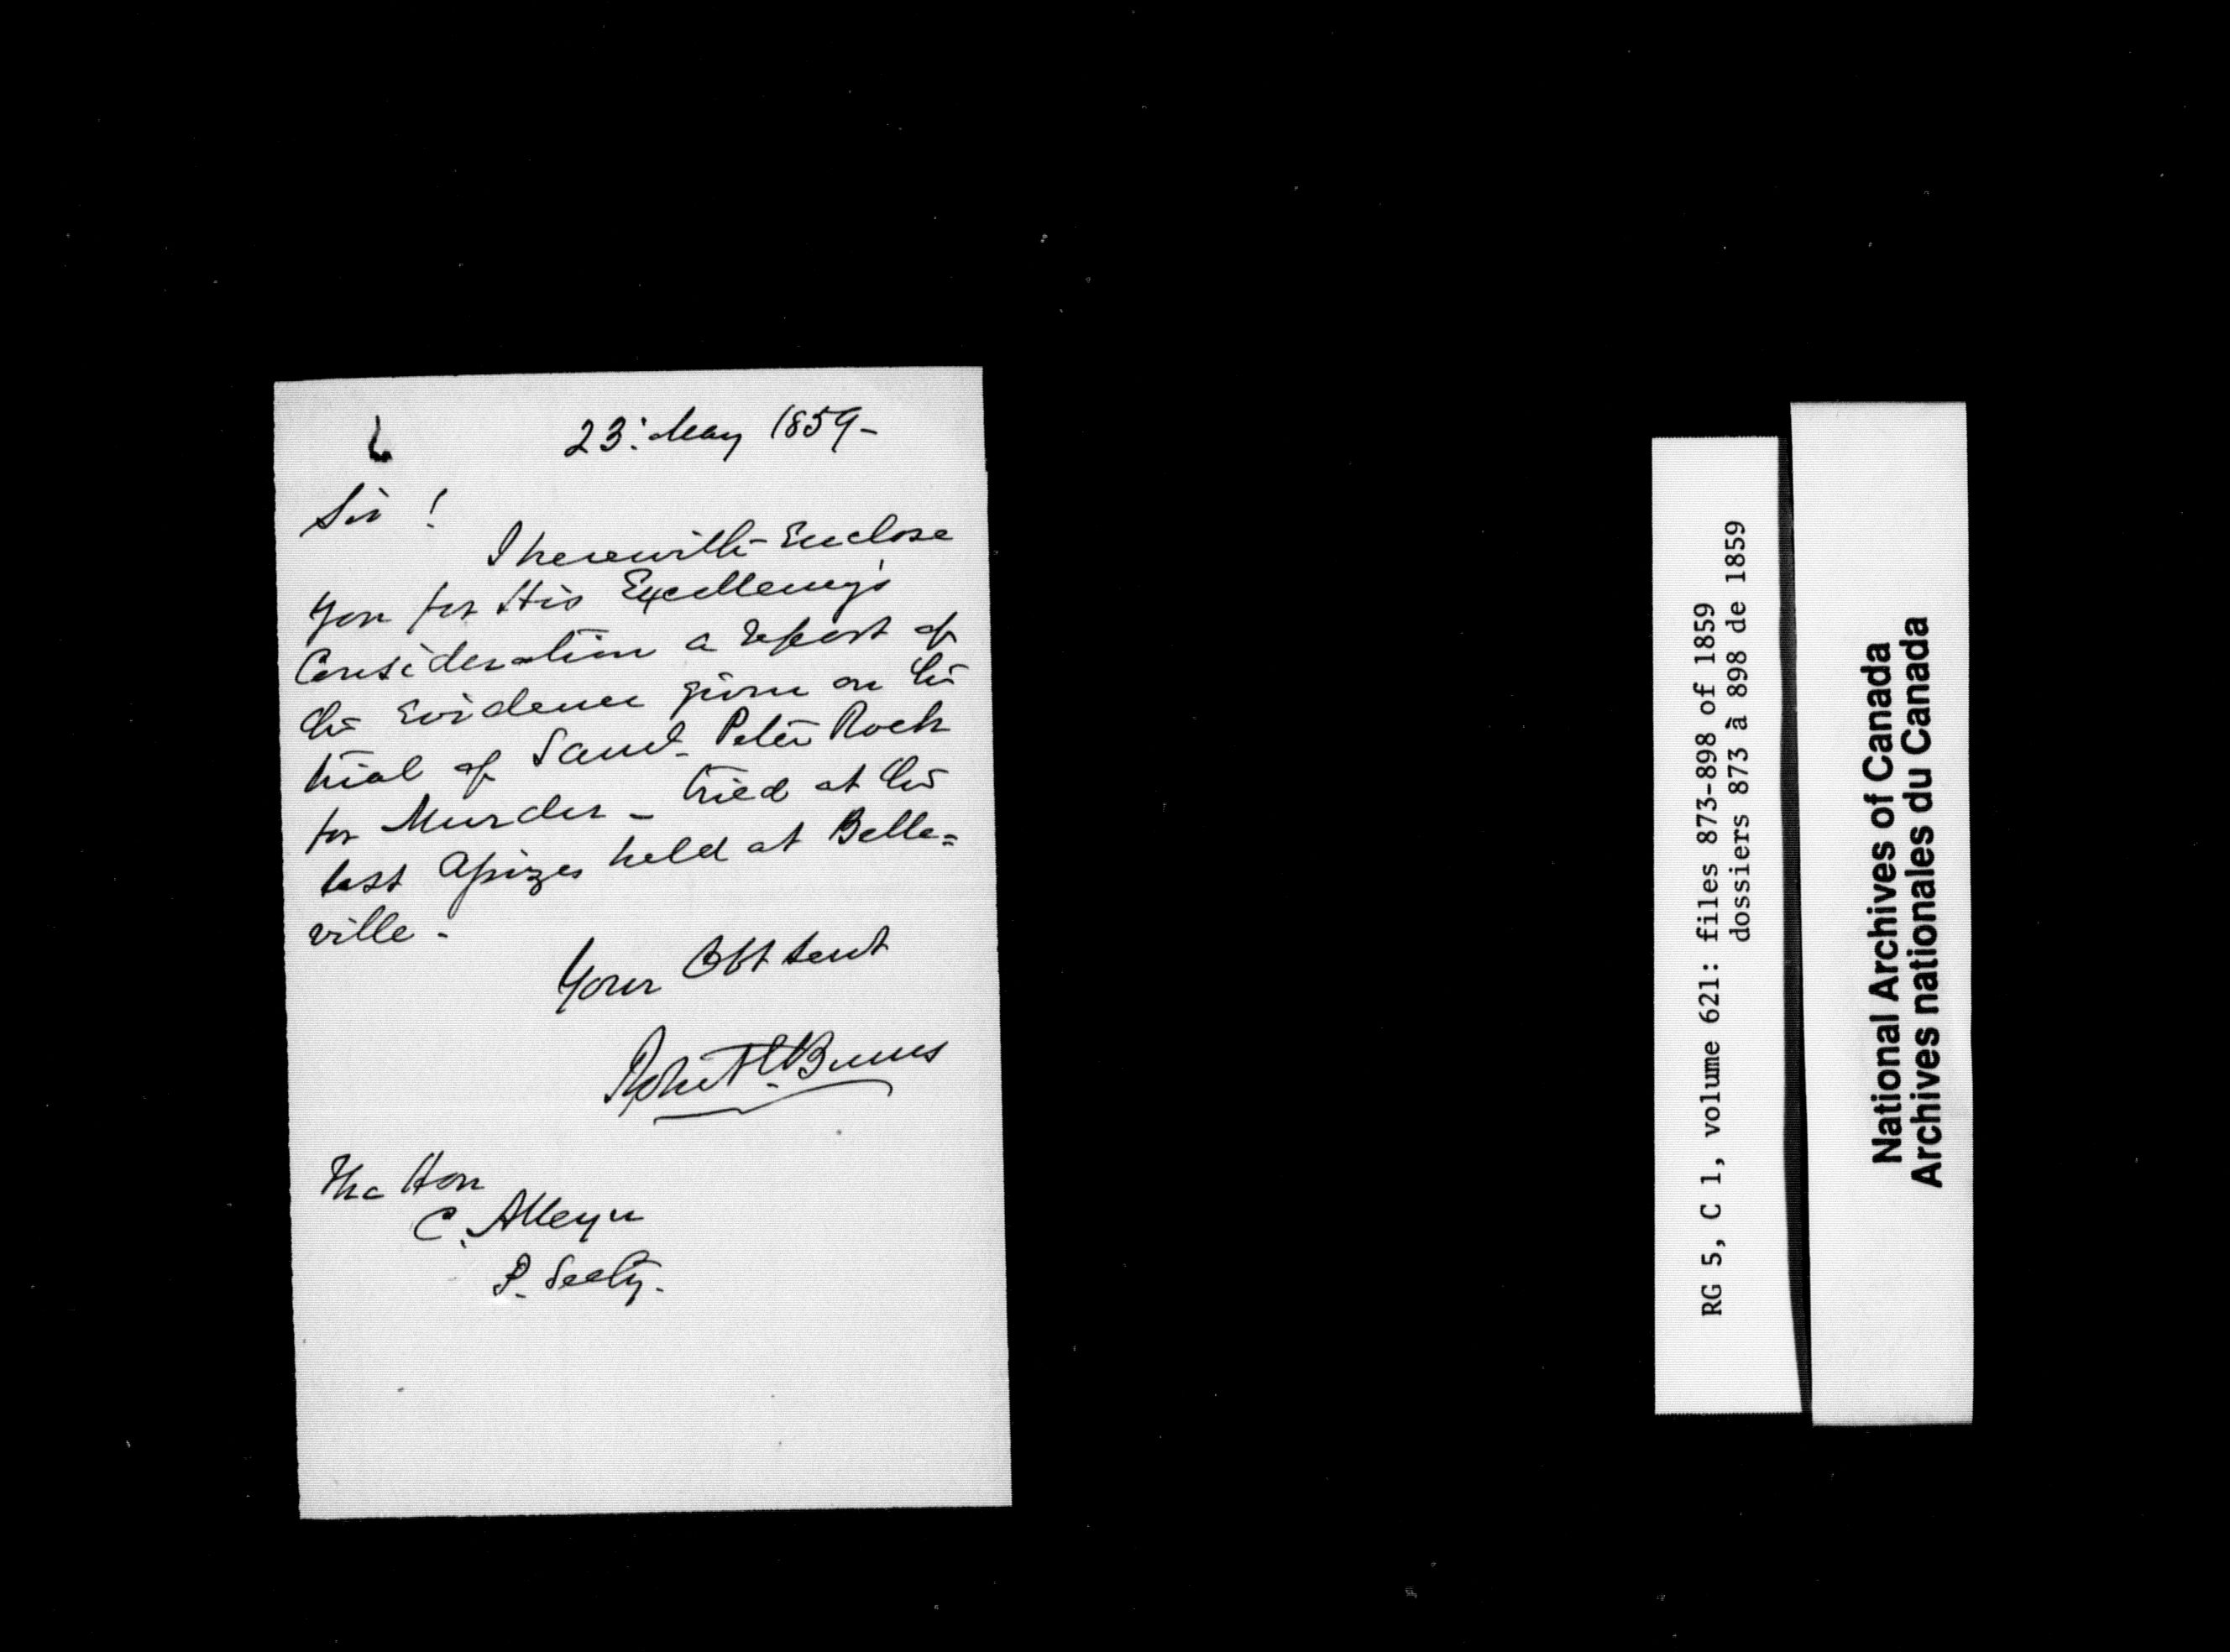 23. May 1859 -
Sir !
I herewith Enclose
you for His Excellency's
Consideration a Report of
the Evidence given on the
trial of Saml. Peter Rock
for Murder - tried at the
last Assizes held at Belle=
ville -
Your Obt Servt
Robt E Burns
The Hon
C. Alleyn
P. Secty.
RG 5, C 1, volume 621: files 873-898 of 1859
dossiers 873 à 898 de 1859
National Archives of Canada
Archives nationales du Canada